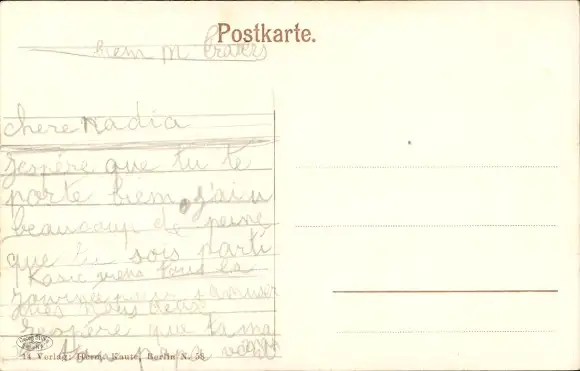 Postkarte.
biem M
chere Nadia
Jespére que tu te
porte biem, j'ai u
beaucoup de peine
que tu sois parti
Kasic viens tous les
pour s'amuser
nous deux
Jespére que ta ma
papa vont
14 Verlag: Herm. Knute, Berlin N. 58